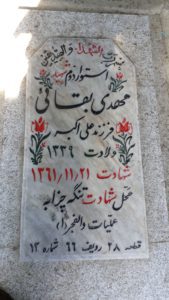 استوار دوم شهید
مهدی بقائی
فرزند علی اکبر
ولادت ۱۳۳۹
شهادت ۱۳۶۱/۱۱/۲۱
محل شهادت تنگه چزابه
عملیات والفجر
قطعه ۲۸ ردیف ۶۶ شماره ۱۲